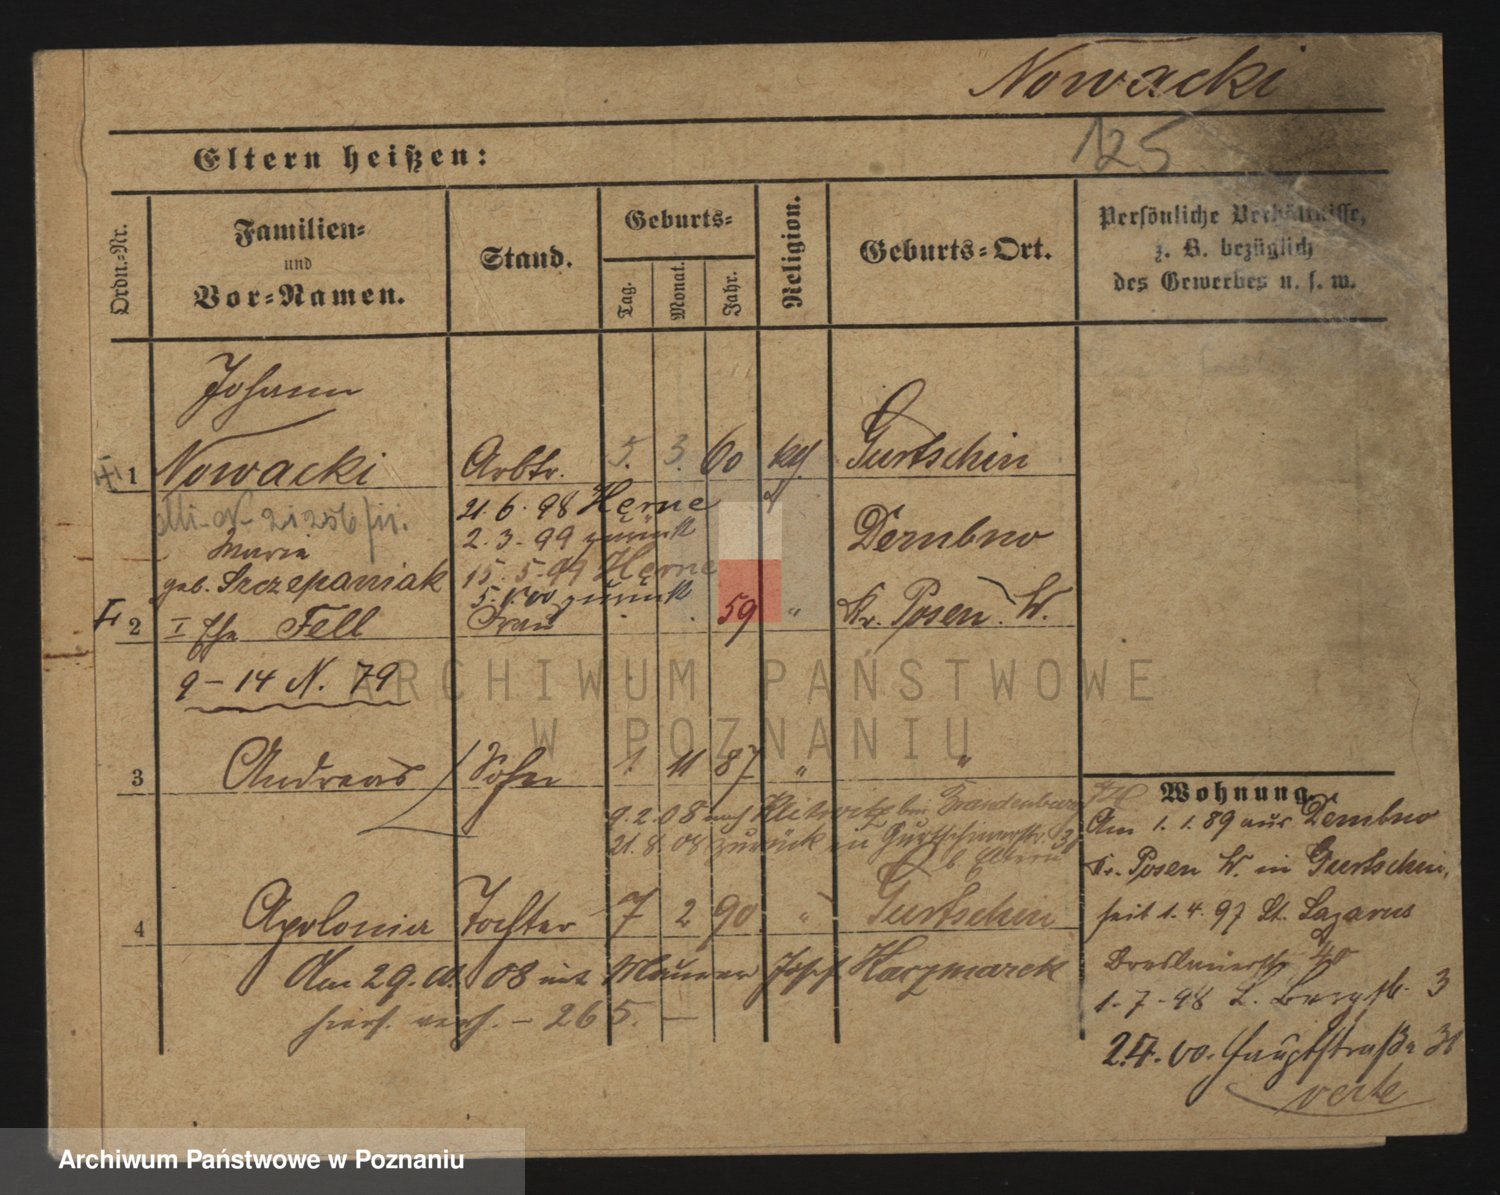 Nowacki
125
Eltern heißen:
Ordn.-Nr.
Familien-
und
Vor-Namen.
Stand.
Geburts-
Tag.
Monat.
Jahr.
Religion.
Geburts-Ort.
Persönliche Verhältnisse,
z. B. bezüglich
des Gewerbes u. s. w.
Johann
1 Nowacki Arbtr. 5. 3. 60 kath. Gurtschin
21.6.98 Herne
2.3.99 zurück
Maria
geb. Szczepaniak
15.5.99 Herne
zurück
Dembno
2 I Ehe Fell Frau 59 " Kr. Posen W.
9 – 14 N. 79
3 Andreas Sohn 1. 11 87 " "
9.2.08 nach bei Brandenburg
21.8.08 zurück zu Gurtschinerstr. 31
b. Eltern
4 Apolonia Tochter 7 2 90 " Gurtschin
Am 29. 08 mit Maurer Josef Kaczmarek
hiers. verh. – 265. —
Wohnung
Am 1.1.89 aus Dembno
Kr. Posen W. in Gurtschin,
seit 1.4.97 St. Lazarus
Breslauerstr. 40
1.7.98 L. Bergstr. 3
2.4.00. Hauptstraße 31
verte
ARCHIWUM PAŃSTWOWE
W POZNANIU
Archiwum Państwowe w Poznaniu